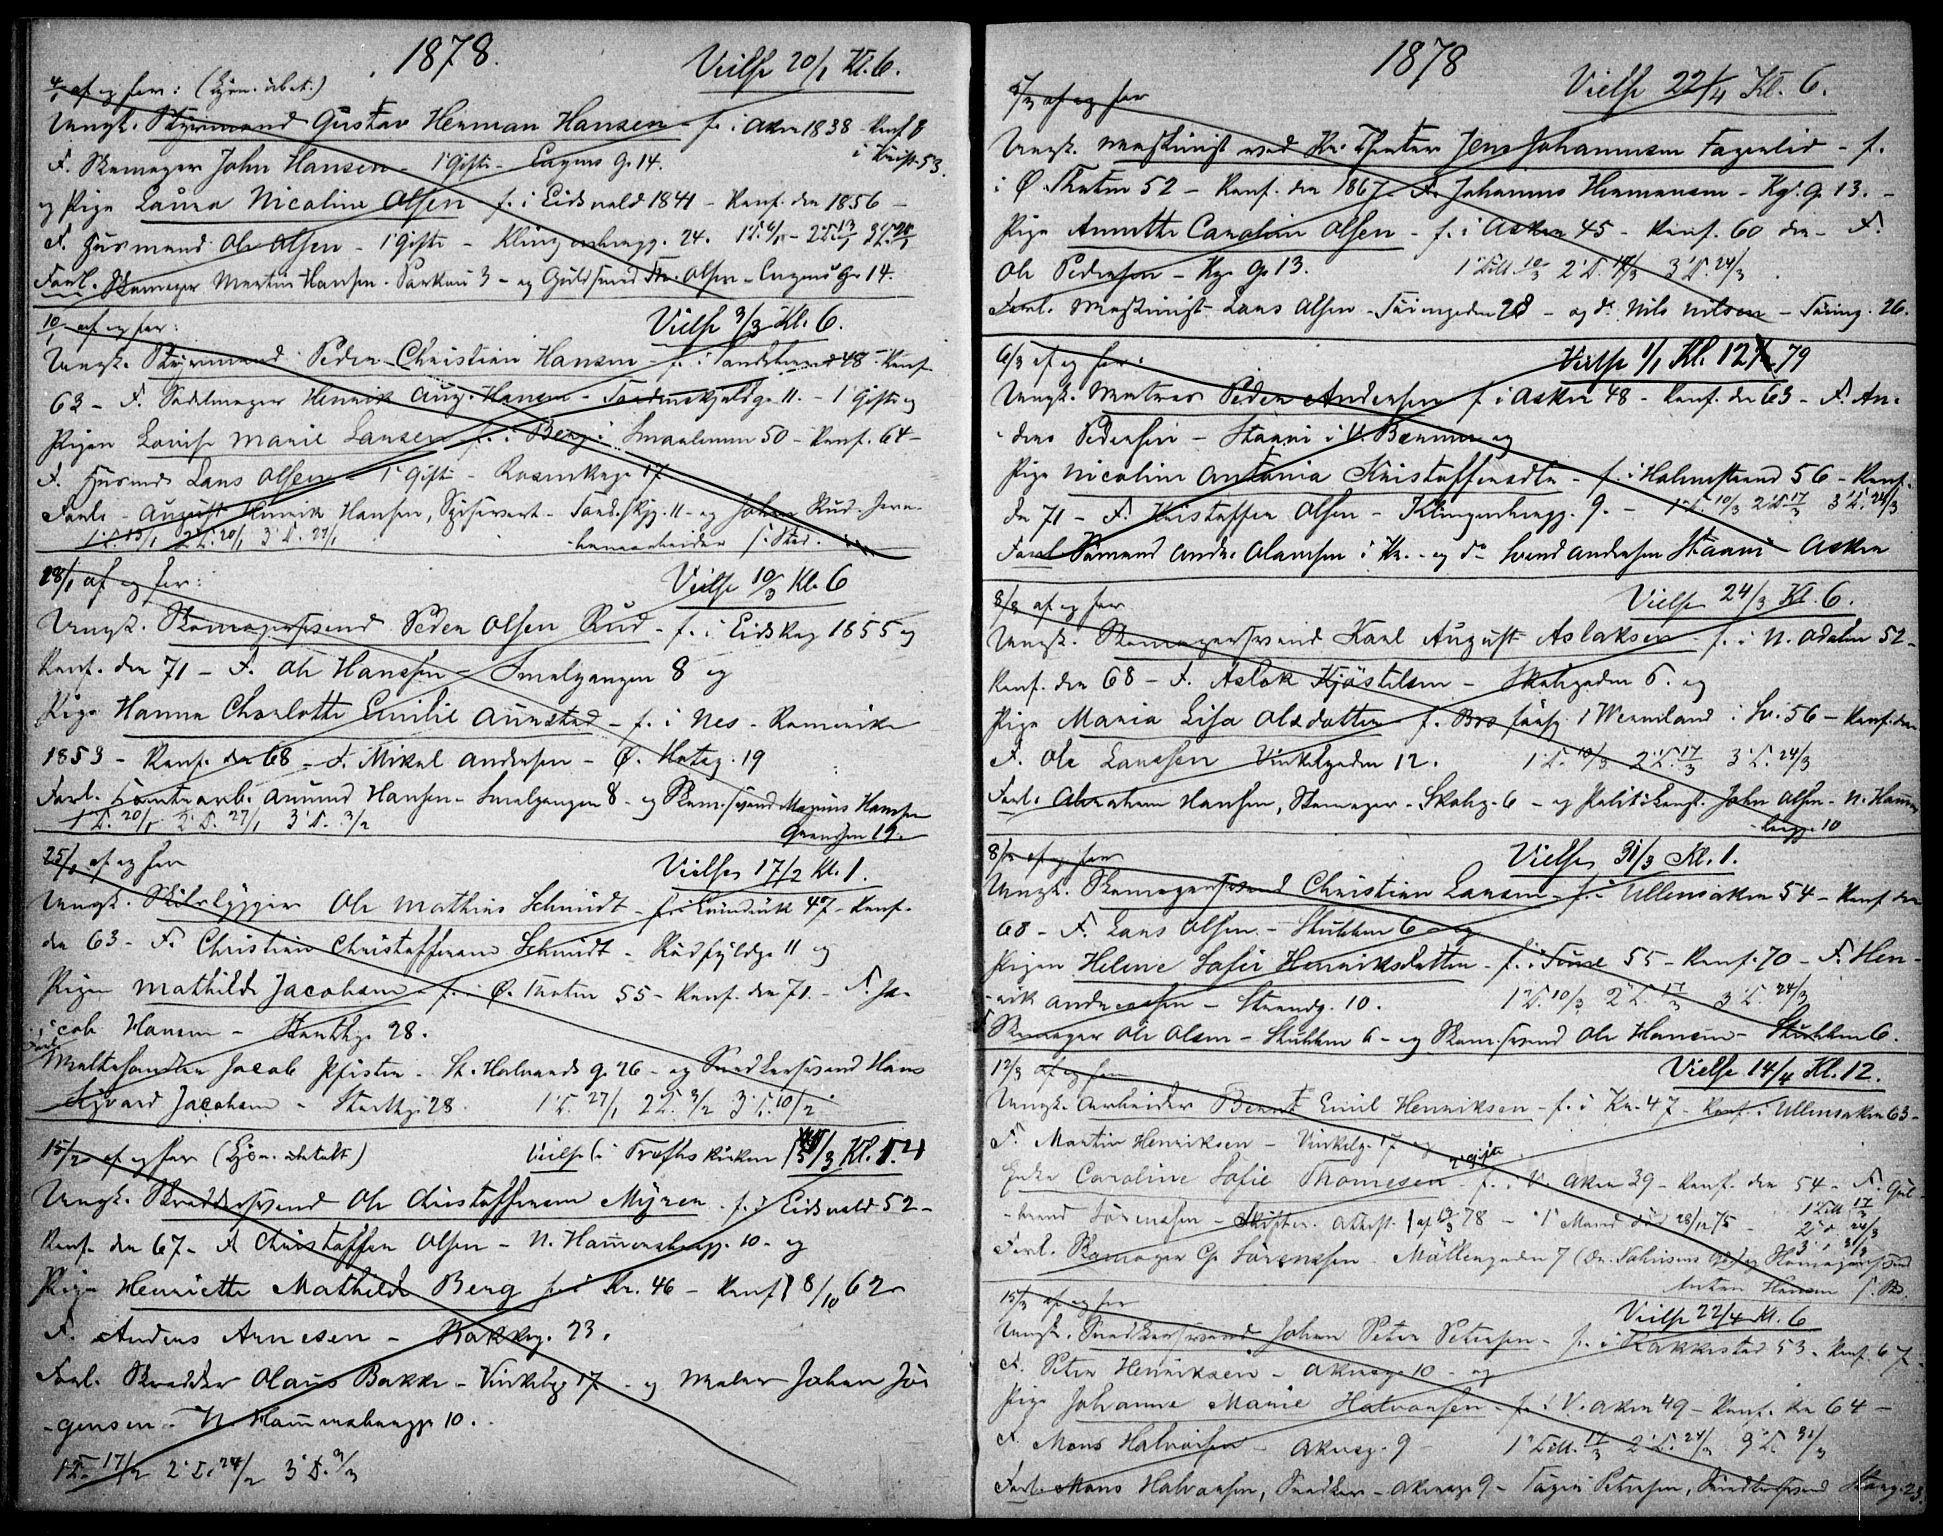 1878.
Vielse 20/1 Kl. 6.
4/1 af og for: (Hjem. ubet.)
Ungk. Styrmand Gustav Herman Hansen - f. i Aker 1838 - Konf.
i Krist. 53.
F. Skomager John Hansen - 1' Gifte - Enggans g. 14.
og Pige Laura Nicoline Olsen - f. i Eidsvold 1841 - Konf. der 1856 -
F. Husmand Ole Olsen - 1' Gifte - Klingenbergg. 24. 1 T. 6/1 - 2 T. 13/1 3 T. 20/1
Forl. Skomager Martin Hansen - Parkvei 3 - og Guldsmed Fr. Olsen - Enggans g. 14.
10/1 af og for:
Vielse 3/3 Kl. 6.
Ungk. Styrmand Peder Christian Hansen - f. i 48 - Konf.
63 - F. Sadelmager Henrik Aug. Hansen - Tordenskjoldsg. 11. - 1' Gifte og
Pigen Lovise Marie Larsen f. i Berg i Smaalenene 50 - Konf. 64 -
F. Husmd. Lars Olsen - 1' Gifte - Rosenkrg. 17
Forl. - August Henrik Hansen, Spisevert - Tordskjg. 11 - og Johan Rud. Jern-
1 T. 13/1 2 T. 20/1 3 T. 27/1
banearbeider
18/1 af og for:
Vielse 10/3 Kl. 6
Ungk. Skomagersvend Peder Olsen Rud - f. i Eidskog 1855 og
Konf. der 71 - F. Ole Hansen - Smalgangen 8 og
Pige Hanna Charlotte Emilie Aunstad - f. i Nes - Romerike
1853 - Konf. der 68 - F. Mikal Andersen - Ø. Hateg. 19
Forl. Tomtearb. Amund Hansen - Smalgangen 8 - og Skom.svend Magnus Hansen
1 T. 20/1 2 T. 27/1 3 T. 3/2
Grænsen 19.
25/1 af og for
Vielse 17/2 Kl. 1.
Ungk. Ole Mathias Schmidt - f. i 47 - Konf.
der 63 - F. Christian Christoffersen Schmidt - Rødfyldg. 11 og
Pigen Mathilde Jacobsen - f. i Ø. Thoten 55 - Konf. der 71 - F. Ja-
cob Hansen - Storthg. 28.
Forl.
Melhandler Jacob Pfister - St. Halvards g. 26 - og Snedkersvend Hans
Sigvard Jacobsen - Storthg. 28. 1 T. 27/1 2 T. 3/2 3 T. 10/2
15/2 af og for (Hjem. ubetalt)
Vielse (i Trefls kirken) /3 Kl.
Ungk. Skreddersvend Ole Christoffersen Myren - f. i Eidsvold 52 -
Konf. der 67 - F. Christoffer Olsen - N. Hammersborgg. 10 - og
Pige Henriette Mathilde Berg f. i Kr. 46 - Konf. 8/10 62
F. Anders Arnesen - Bakkeg. 23.
Forl. Skredder Olaus Bakke - Vinkelg. 17 - og Maler Johan Jør
-gensen - N. Hammersborgg. 10.
1 T. 17/2 2 T. 24/2 3 T. 3/3
1878
5/3 af og for
Vielse 22/4 Kl. 6.
Ungk. Maskinist ved Kr. Theater Jens Johannesen Fagerlid - f.
i Ø. Thoten 52 - Konf. der 1867 - F. Johannes Hermansen - Kg. g. 13. -
Pige Annette Caroline Olsen - f. i Asker 45 - Konf. 60 der - F.
Ole Pedersen - Kg. g. 13. 1 Till. 10/3 2 T. 17/3 3 T. 24/3
Forl. Maskinist Lars Olsen - Tøiengaden 28 - og do Nils Nilsen - Tøieng. 26.
6/3 af og for:
Vielse 1/1 Kl. 12 79
Ungk. Matros Peder Andersen f. i Asker 48 - Konf. der 63 - F. An-
ders Pedersen - Stanni i V. Bærum og
Pige Nicoline Antonia Kristoffersdtr - f. i Holmestrand 56 - Konf.
der 71 - F. Kristoffer Olsen - Klingenbergg. 9. - 1 T. 10/3 2 T. 17/3 3 T. 24/3
Forl. Sømand Andr. Olaussen i Kr. - og do Svend Andersen Stanni - Asker
8/3 af og for
Vielse 24/3 Kl. 6.
Ungk. Skomagersvend Karl August Aslaksen - f. i N. Odalen 52 -
Konf. der 68 - F. Aslak Kjøstelsen - Skolegaden 6. og
Pige Maria Lisa Olsdatter - f. Bro i Wermland i Sv. 56 - Konf. der
F. Ole Larssen Vinkelgaden 12. 1 T. 10/3 2 T. 17/3 3 T. 24/3
Forl. Abraham Hansen, Skomager - Skoleg. 6 - og Politikonst. John Olsen - N. Hamm
-bergg. 10
8/3 af og for
Vielse 31/3 Kl. 1.
Ungk. Skomagersvend Christian Larsen - f. i Ullensaker 54 - Konf. der
68 - F. Lars Olsen - Stubben 6 - og
Pigen Helene Sofie Henriksdatter - f. i Tune 55 - Konf. 70 - F. Hen-
-rik Andreassen - Strandg. 10. 1 T. 10/3 2 T. 17/3 3 T. 24/3
Skomager Ole Olsen - Stubben 6 - og Skom.svend Ole Hansen - Stubben 6.
12/3 af og for
Vielse 14/4 Kl. 12.
Ungk. Arbeider Bernt Emil Henriksen - f. i Kr. 47 - Konf. i Ullensaker 63 -
F. Martin Henriksen - Vinkelg. 17 og
Enke Caroline Sofie Thomesen - f. i V. Aker 39 - Konf. der 54 - F. Gul-
-brand Sørensen - Skifter. Attest 78 - 1' Mand død 28/12 75 - 1 Till. 17/3
2' 24/3
3' 31/3
Forl. Skomager G. Sørensen - Møllergaden 7 og Skomagersvend
Anton Hansen
15/3 af og for
Vielse 22/4 Kl. 6
Ungk. Snedkersvend Johan Peter Petersen - f. i Rakkestad 53 - Konf. 67.
F. Peter Henriksen - Akersg. 10 - og
Pige Johanne Marie Halvorsen - f. i V. Aker 49 - Konf. der 64 -
F. Mons Halvorsen - Akersg. 9 - 1 Till. 17/3 2 T. 24/3 3 T. 31/3
Forl. Mons Halvorsen, Snedker - Akersg. 9 - Petersen, Snedkersvend Storg. 23.